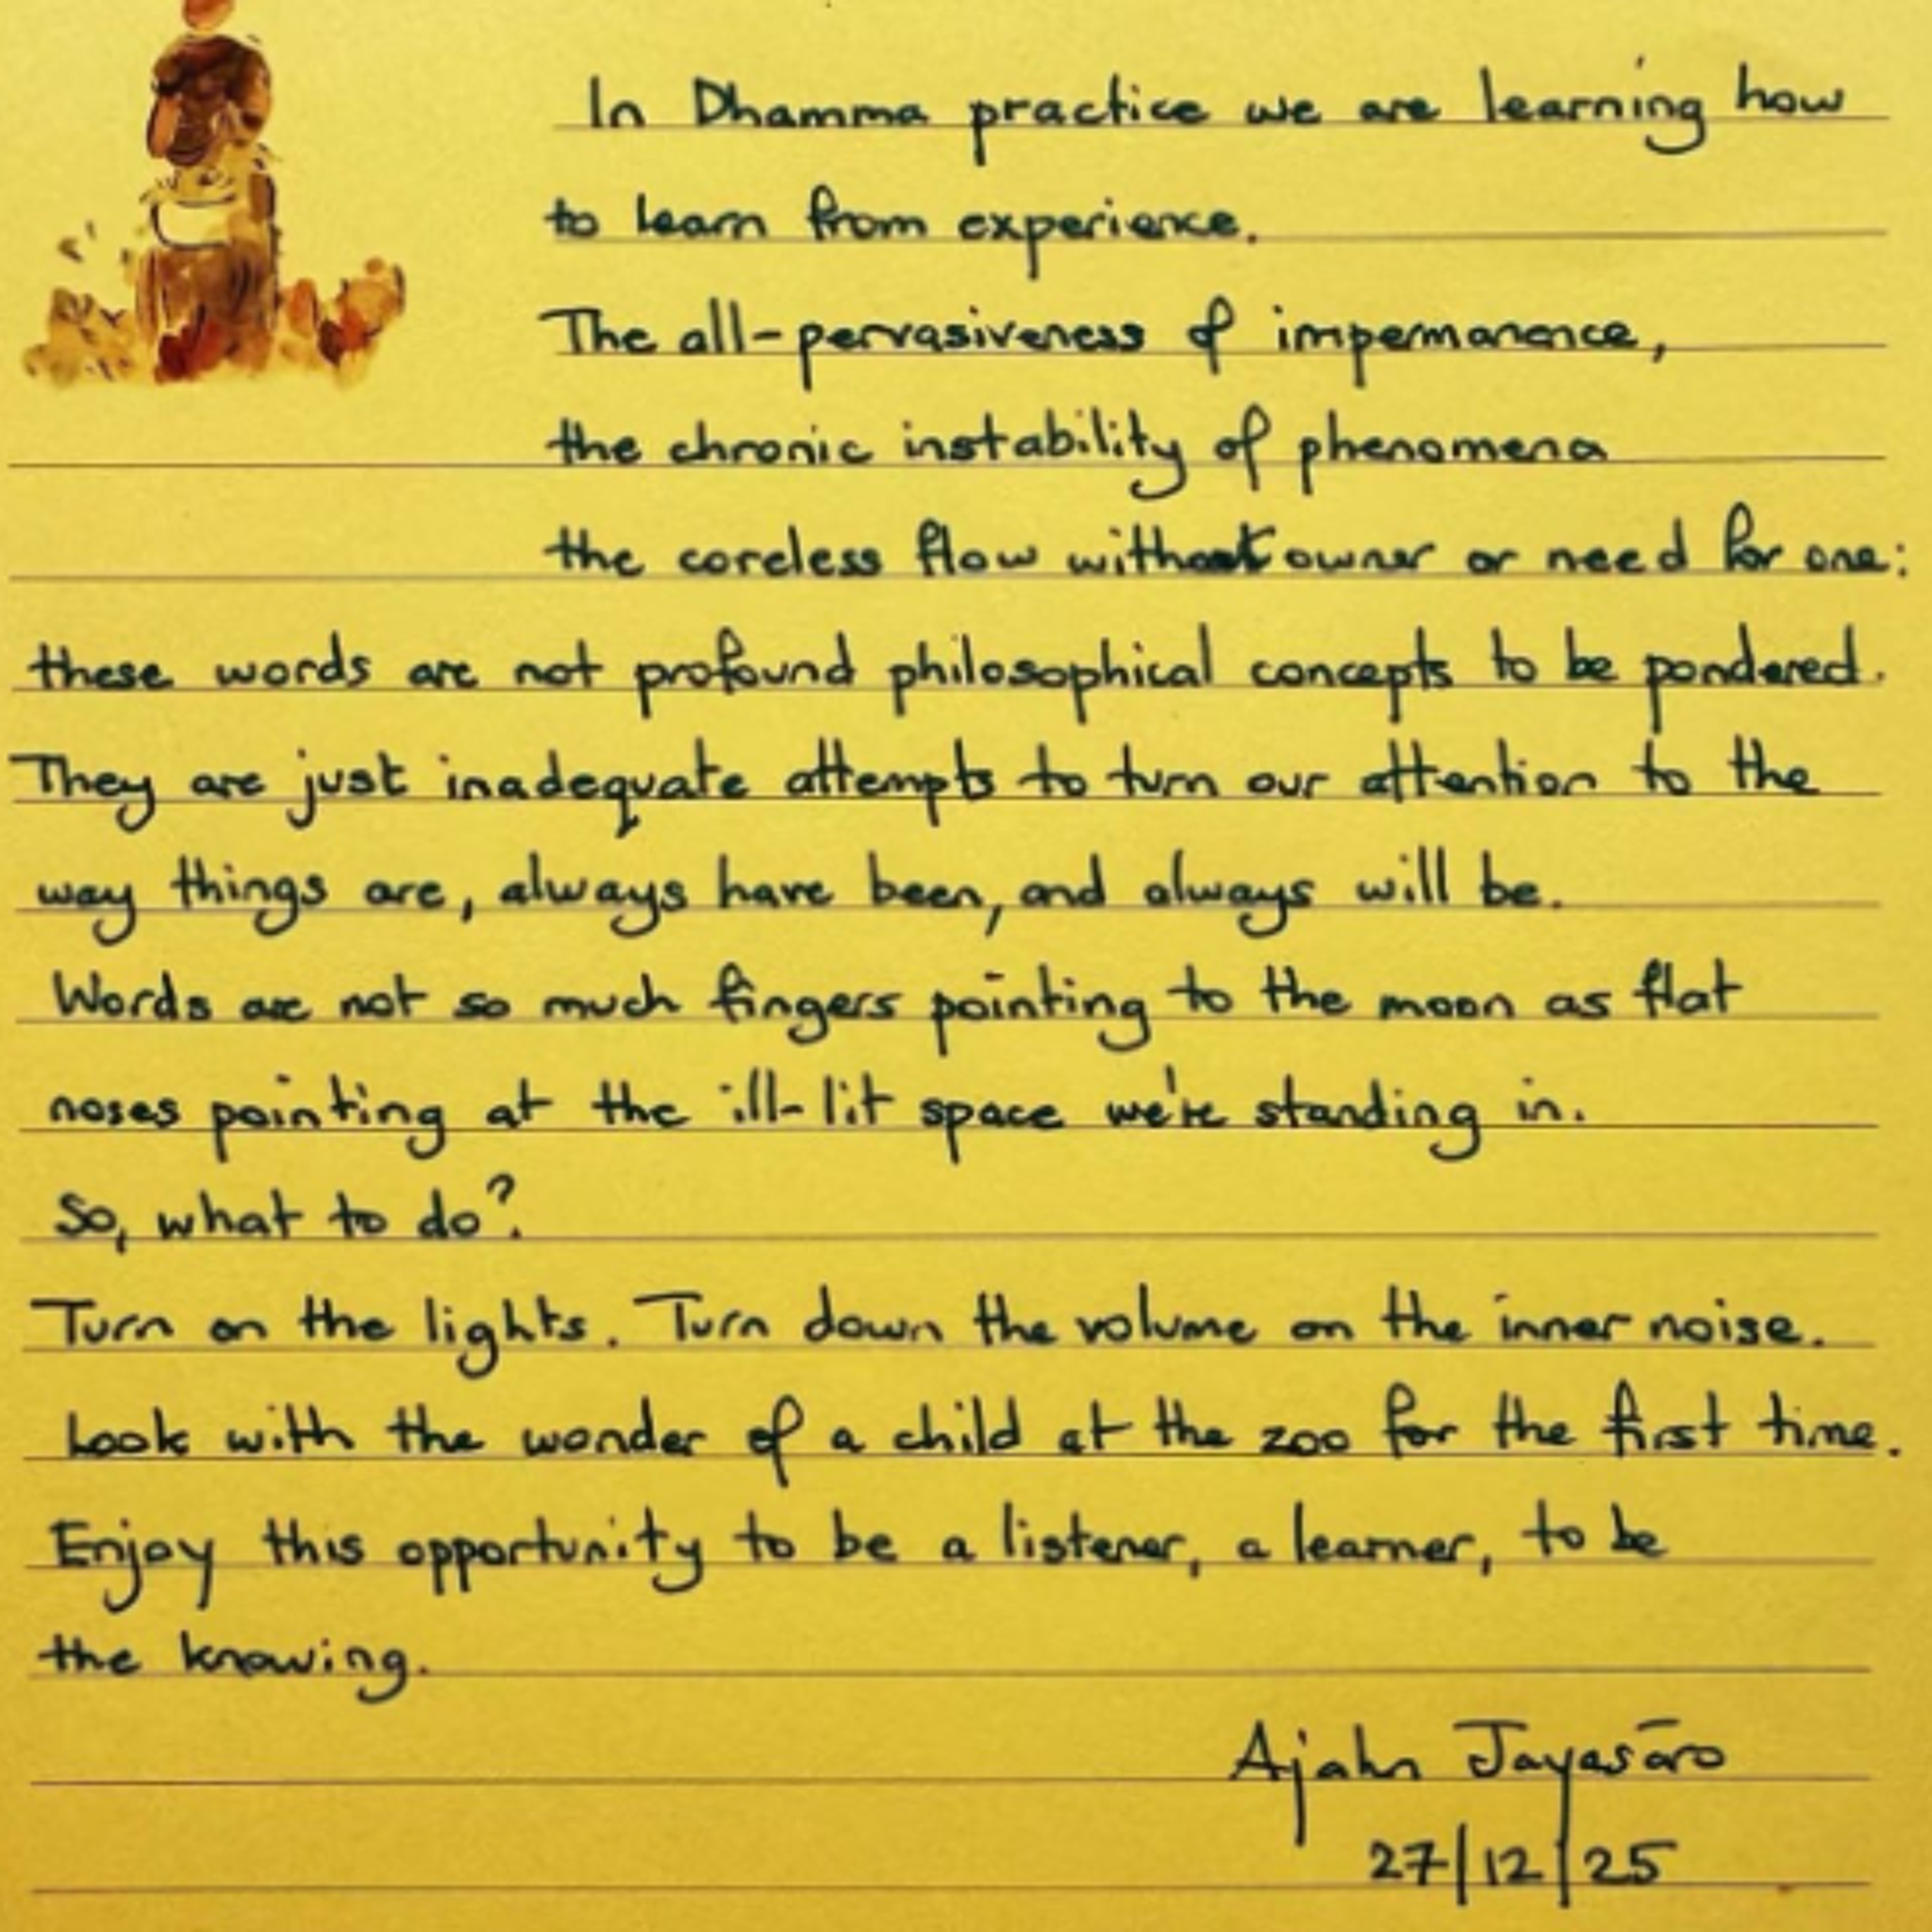 In Dhamma practice we are learning how
to learn from experience.
The all-pervasiveness of impermanence,
the chronic instability of phenomena
the coreless flow without owner or need for one:
these words are not profound philosophical concepts to be pondered.
They are just inadequate attempts to turn our attention to the
way things are, always have been, and always will be.
Words are not so much fingers pointing to the moon as flat
noses pointing at the ill-lit space we're standing in.
So, what to do?
Turn on the lights. Turn down the volume on the inner noise.
Look with the wonder of a child at the zoo for the first time.
Enjoy this opportunity to be a listener, a learner, to be
the knowing.
Ajahn Jayasāro
27/12/25